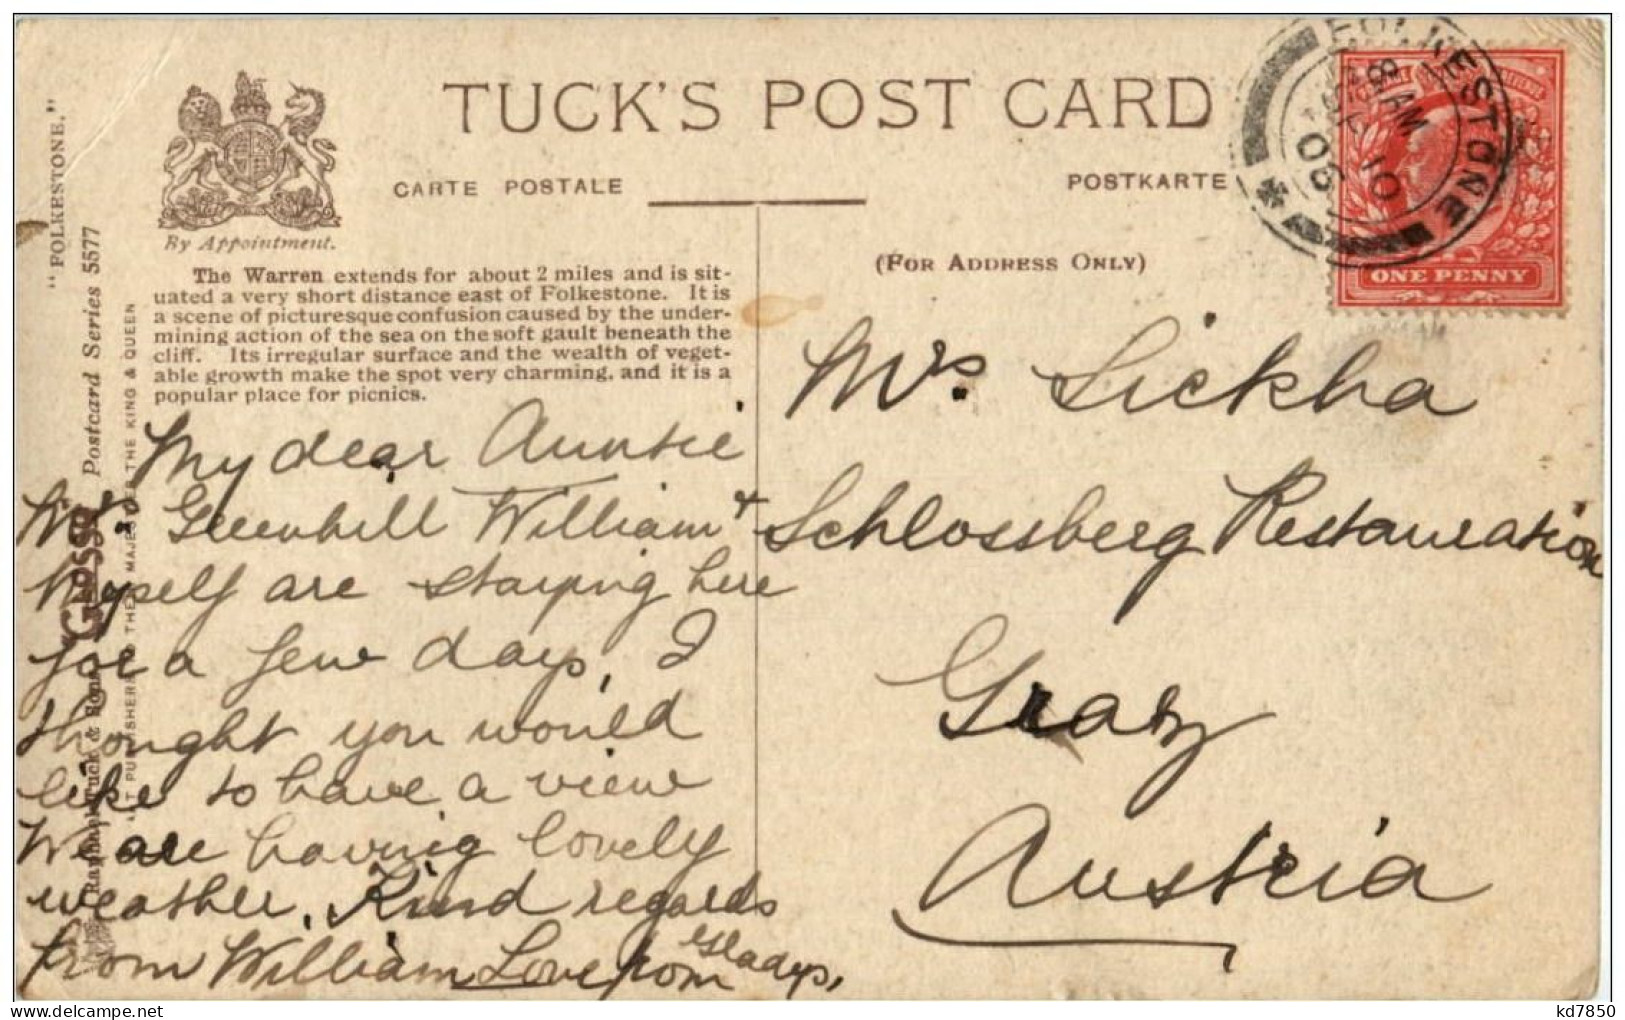 TUCK'S POST CARD
CARTE POSTALE
POSTKARTE
By Appointment.
(FOR ADDRESS ONLY)
"FOLKESTONE."
Postcard Series 5577
Glosso
The Warren extends for about 2 miles and is sit-
uated a very short distance east of Folkestone. It is
a scene of picturesque confusion caused by the under-
mining action of the sea on the soft gault beneath the
cliff. Its irregular surface and the wealth of veget-
able growth make the spot very charming, and it is a
popular place for picnics.
My dear Auntie
Mr. Greenhill William &
Myself are staying here
for a few days, I
thought you would
like to have a view
We are having lovely
weather. Kind regards
from William Love from Gladys,
Mrs. Lickha
Schlossberg Restauration
Graz
Austria
FOLKESTONE
8 AM
10
06
ONE PENNY
kd7850